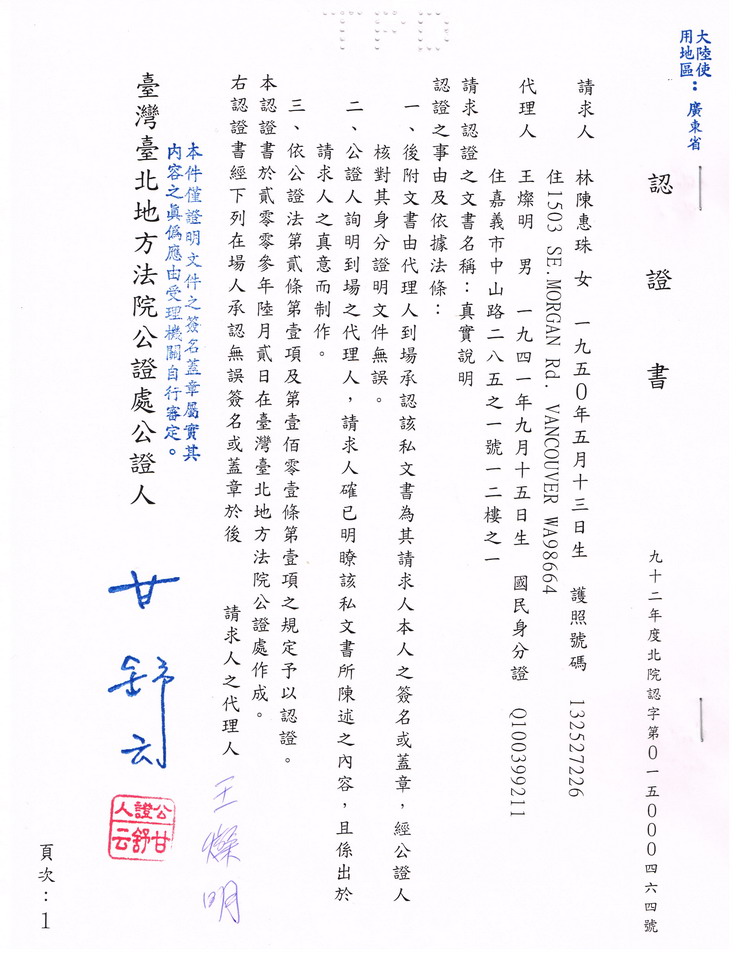 大陸使
用地區：廣東省
認證書
九十二年度北院認字第0一五000四六四號
請求人　林陳惠珠　女　一九五0年五月十三日生　護照號碼　132527226
住1503 SE.MORGAN Rd. VANCOUVER WA98664
代理人　王燦明　男　一九四一年九月十五日生　國民身分證　Q100399211
住嘉義市中山路二八五之一號一二樓之一
請求認證之文書名稱：真實說明
認證之事由及依據法條：
一、後附文書由代理人到場承認該私文書為其請求人本人之簽名或蓋章，經公證人
核對其身分證明文件無誤。
二、公證人詢明到場之代理人，請求人確已明瞭該私文書所陳述之內容，且係出於
請求人之真意而制作。
三、依公證法第貳條第壹項及第壹佰零壹條第壹項之規定予以認證。
本認證書於貳零零參年陸月貳日在臺灣臺北地方法院公證處作成。
右認證書經下列在場人承認無誤簽名或蓋章於後　請求人之代理人　王燦明
本件僅證明文件之簽名蓋章屬實其
內容之真偽應由受理機關自行審定。
臺灣臺北地方法院公證處公證人　甘舒云
公證人甘舒云
頁次：1